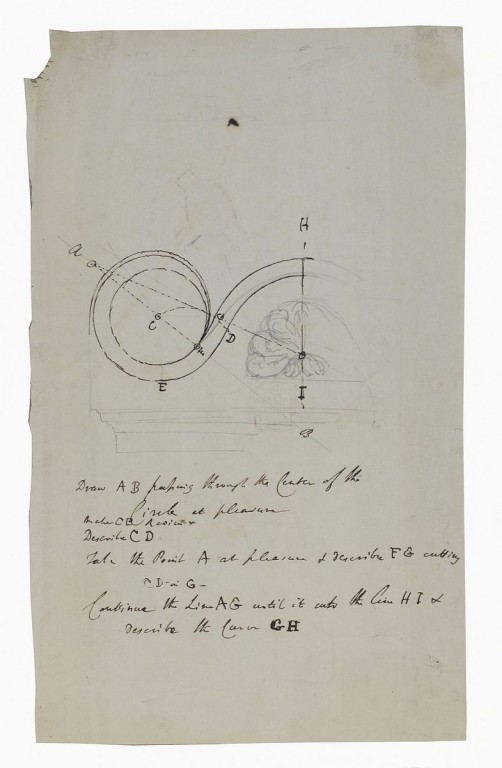 H
A
C
D
E
I
B
Draw AB passing through the Center of the
Circle at pleasure
make CE Radius &
Describe CD
Take the Point A at pleasure & describe FG cutting
CD in G -
Continue the Line AG until it cuts the Line HI &
describe the Curve GH